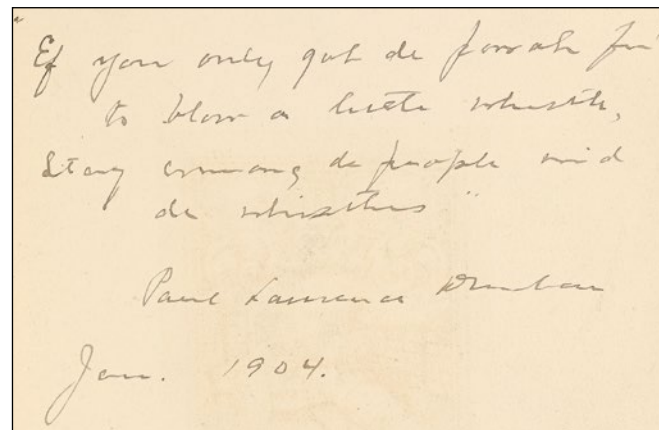 "Ef you only got de powah fu'
to blow a little whistle,
Stay ermong de people wid
de whistles"
Paul Laurence Dunbar
Jan. 1904.